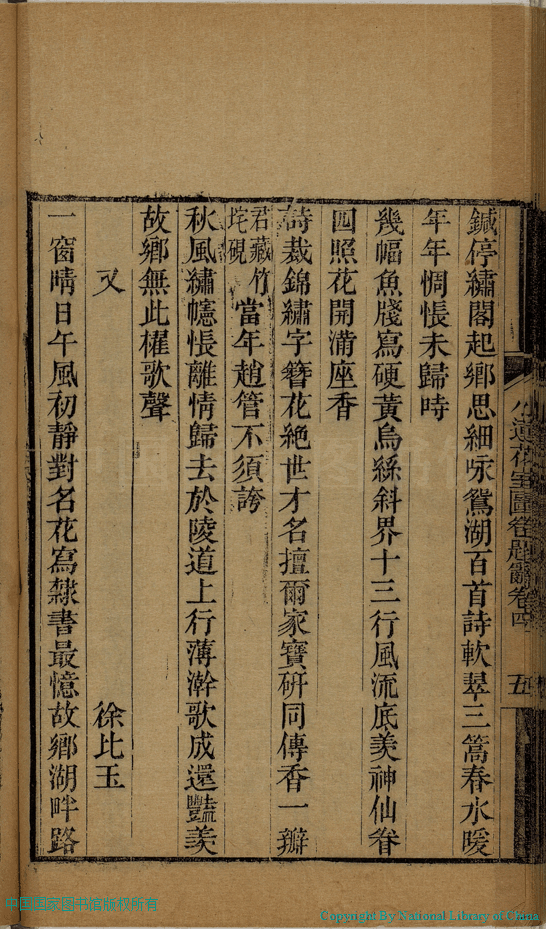 鍼停繡閣起鄉思細咏鴛湖百首詩軟翠三篙春水暖
年年惆悵未歸時
幾幅魚牋寫硬黃烏絲斜界十三行風流底羨神仙眷
四照花開滿座香
詩裁錦繡字簪花絶世才名擅爾家寶研同傳香一瓣
君藏竹
垞硯
當年趙管不須誇
秋風繡幰悵離情歸去於陵道上行薄澣歌成還豔羨
故鄉無此櫂歌聲
又
徐比玉
一窗晴日午風初靜對名花寫隸書最憶故鄉湖畔路
小蓮花室圖卷題辭卷四
五
中国国家图书馆版权所有
Copyright By National Library of China